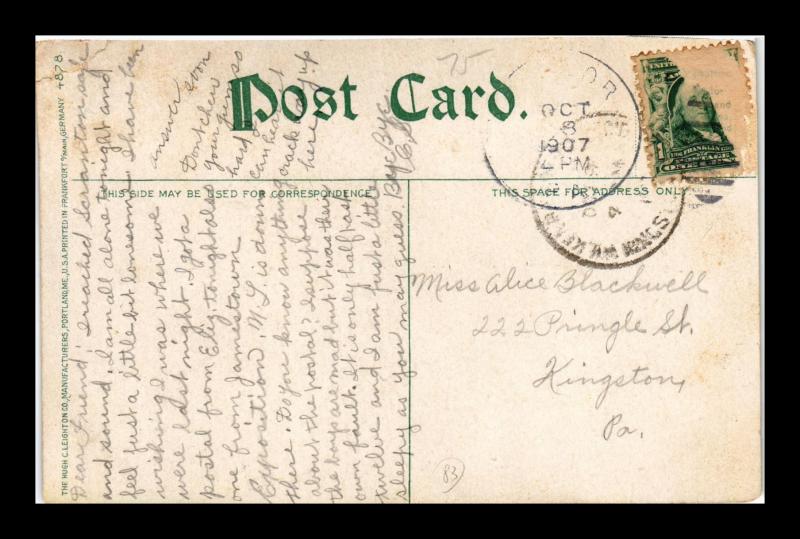 THE HUGH C. LEIGHTON CO., MANUFACTURERS, PORTLAND, ME., U.S.A. PRINTED IN FRANKFORT GERMANY 4878
Post Card.
THIS SIDE MAY BE USED FOR CORRESPONDENCE
THIS SPACE FOR ADDRESS ONLY
75
OCT
1907
PM
KINGSTON
ONE CENT
Dear Friend, I reached Scranton safe
and sound. I am all alone tonight and
feel just a little bit lonesome. I have been
wishing I was where we
were last night. I got a
postal from Eliz. tonight also
one from Jamestown
Exposition. M. L. is down
there. Do you know anything
about the postal? I suppose
the boys are mad but it was their
own fault. It is only half past
twelve and I am just a little
sleepy as you may guess. Bye Bye
answer soon
Don't chew
your gum so
hard I
can hear it
crack way up
here
Miss Alice Blackwell
222 Pringle St.
Kingston,
Pa.
83